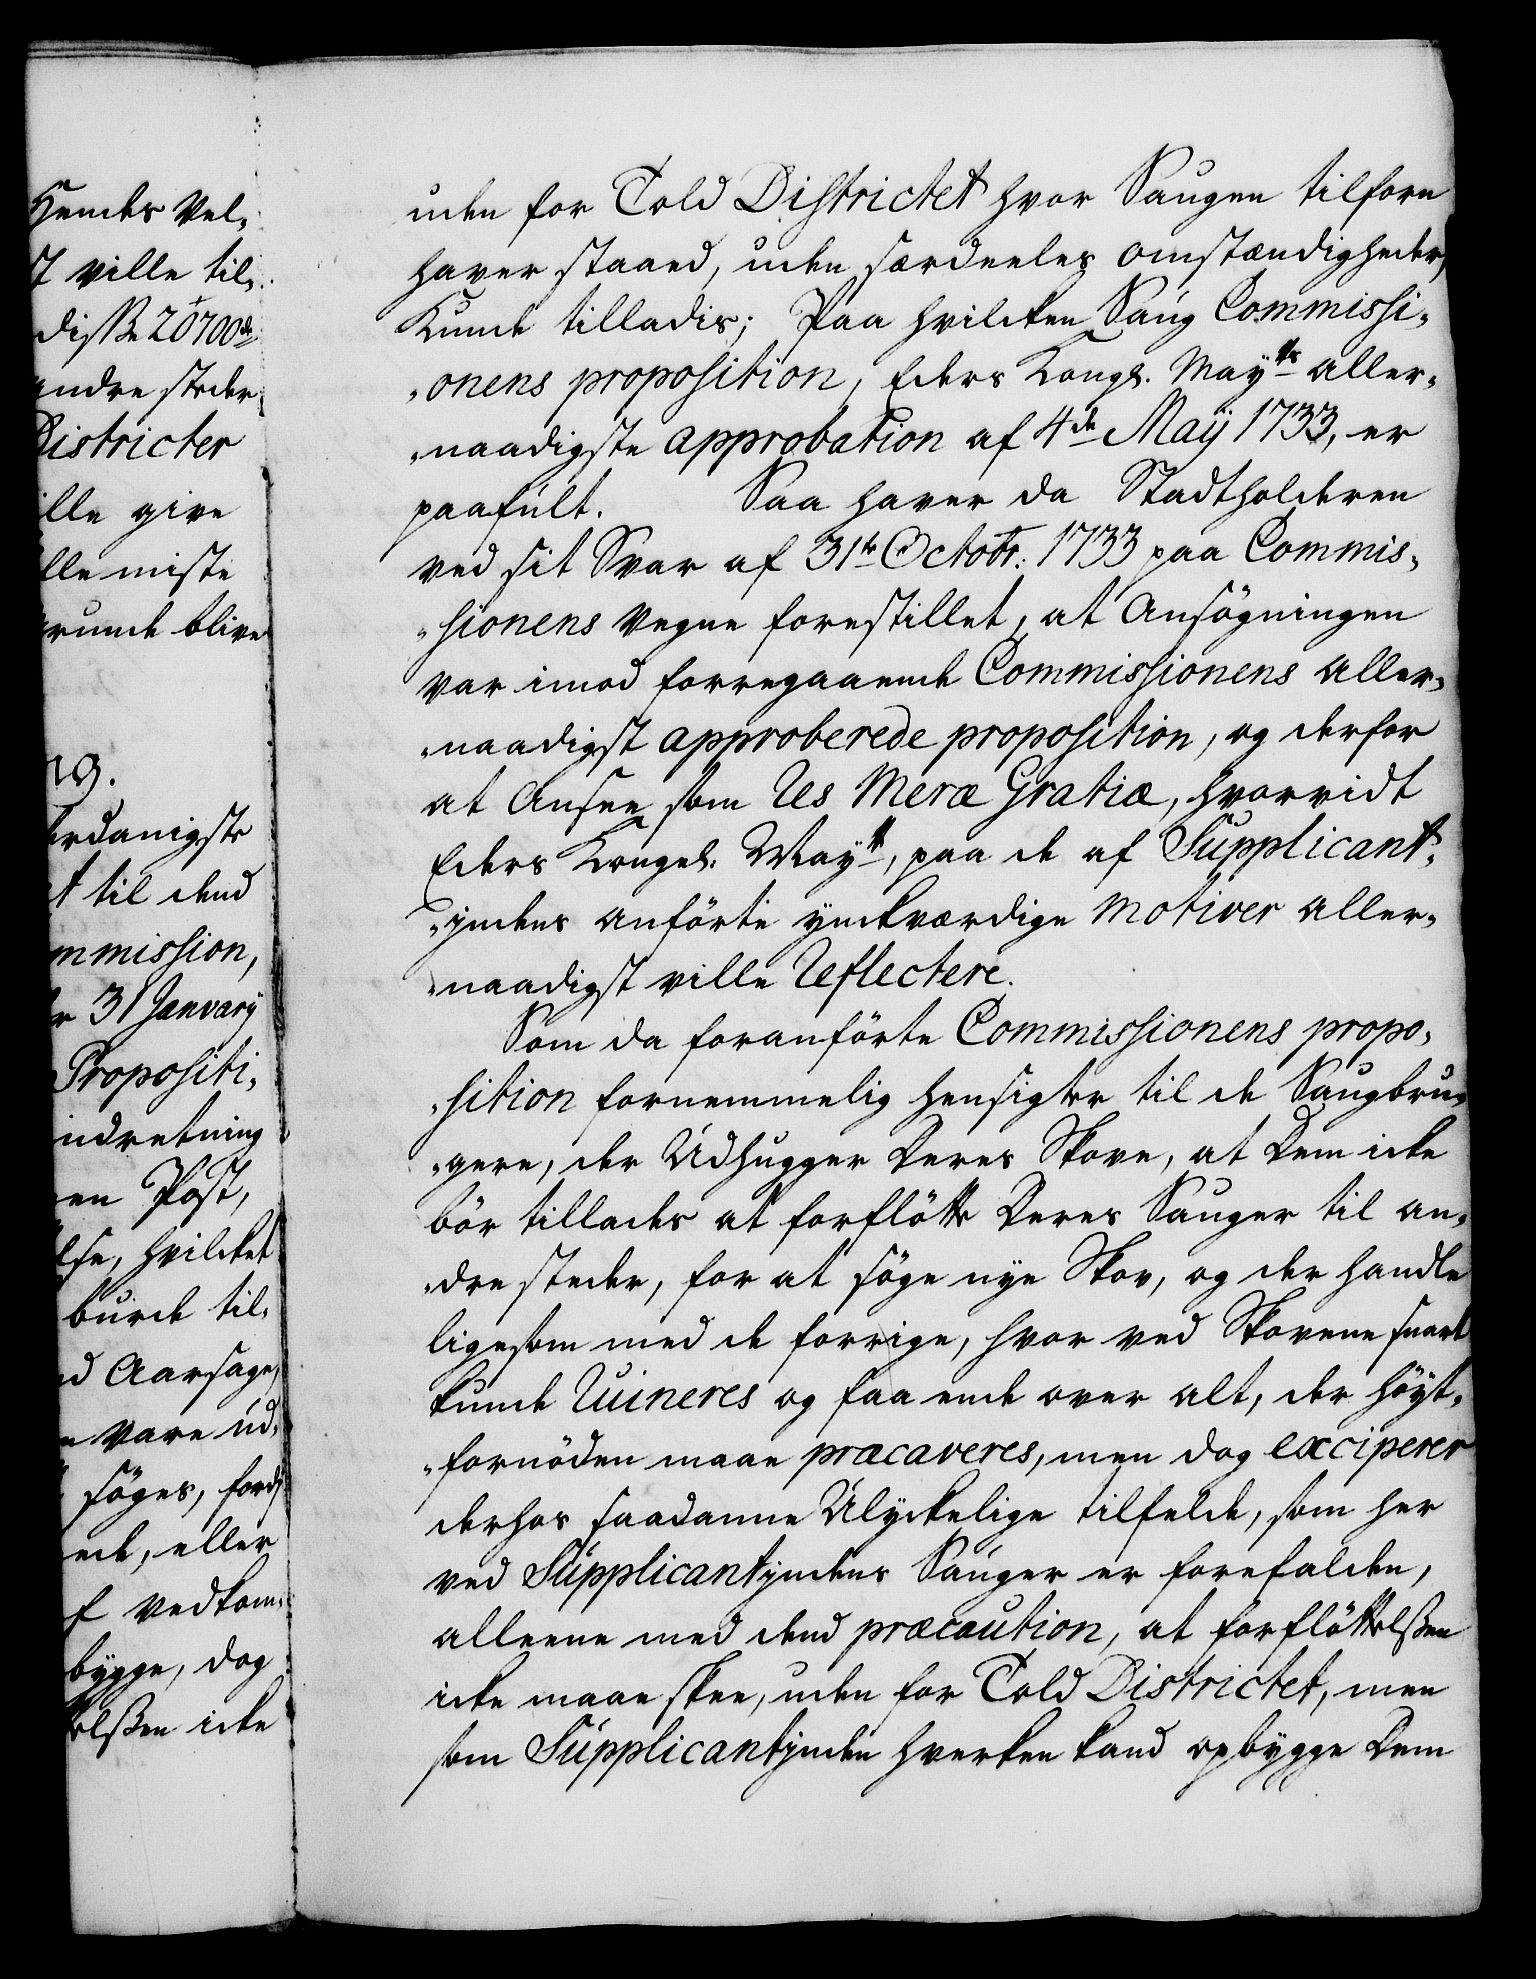 Hendes Vel,
T ville til,
disse 20700de
andre steder
Districter
ille give
lle miste
runde blive
ng.
erdanigste
t til dend
mmission,
r 31 January
Propositi,
indretning
en Post,
lse, hvilcket
burde til,
d Aarsage,
n vare ud,
søges, fordj
ede, eller
f vedkom,
bygge, dog
elßen icke
uden for Told Districtet hvor Saugen tilforn
haver staaed, uden særdeeles omstændigheder,
Kunde tillades; Paa hvilcken Saug Commissi,
„onens proposition, Eders Kongl. Mayts aller,
„naadigste approbation af 4de Maÿ 1733, er
paafult. Saa haver da Stadtholderen
ved sit Svar af 31te Octobr: 1733 paa Commis,
„sionens vegne forestillet, at Ansøgningen
var imod forregaaende Commissionens aller,
„naadigst approberede proposition, og derfor
at Ansee som Res Meræ Gratiæ, hvorvidt
Eders Kongel: Mayt, paa de af Supplicant,
„jndens anførte ynckværdige Motiver aller,
„naadigst ville Reflectere.
Som da foranførte Commissionens propo,
„sition fornemmelig hensigter til de Saugbru,
„gere, der Udhugger Deres Skove, at Dem icke
bør tillades at forfløtte Deres Sauger til an,
„dre steder, for at søge nye Skov, og der handle
ligesom med de forrige, hvor ved Skovene snart
kunde Ruineres og faa ende over alt, der høyt,
„fornøden maae præcaveres, men dog exciperer
derhos saadanne Ulyckelige tilfelde, som her
ved Supplicantjndens Sauger er forefalden,
alleene med dend præcaution, at forfløttelßen
icke maae skee, uden for Told Districtet, men
som Supplicantjnden hverken kand opbygge Dem